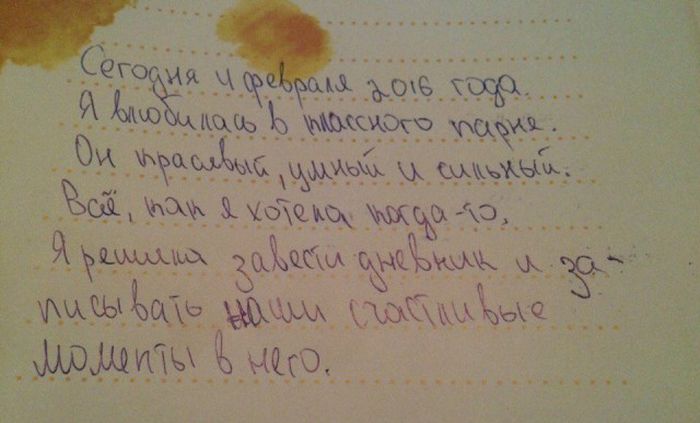 Сегодня 4 февраля 2016 года.
Я влюбилась в классного парня.
Он красивый, умный и сильный.
Всё, как я хотела когда-то.
Я решила завести дневник и за-
писывать наши счастливые
моменты в него.